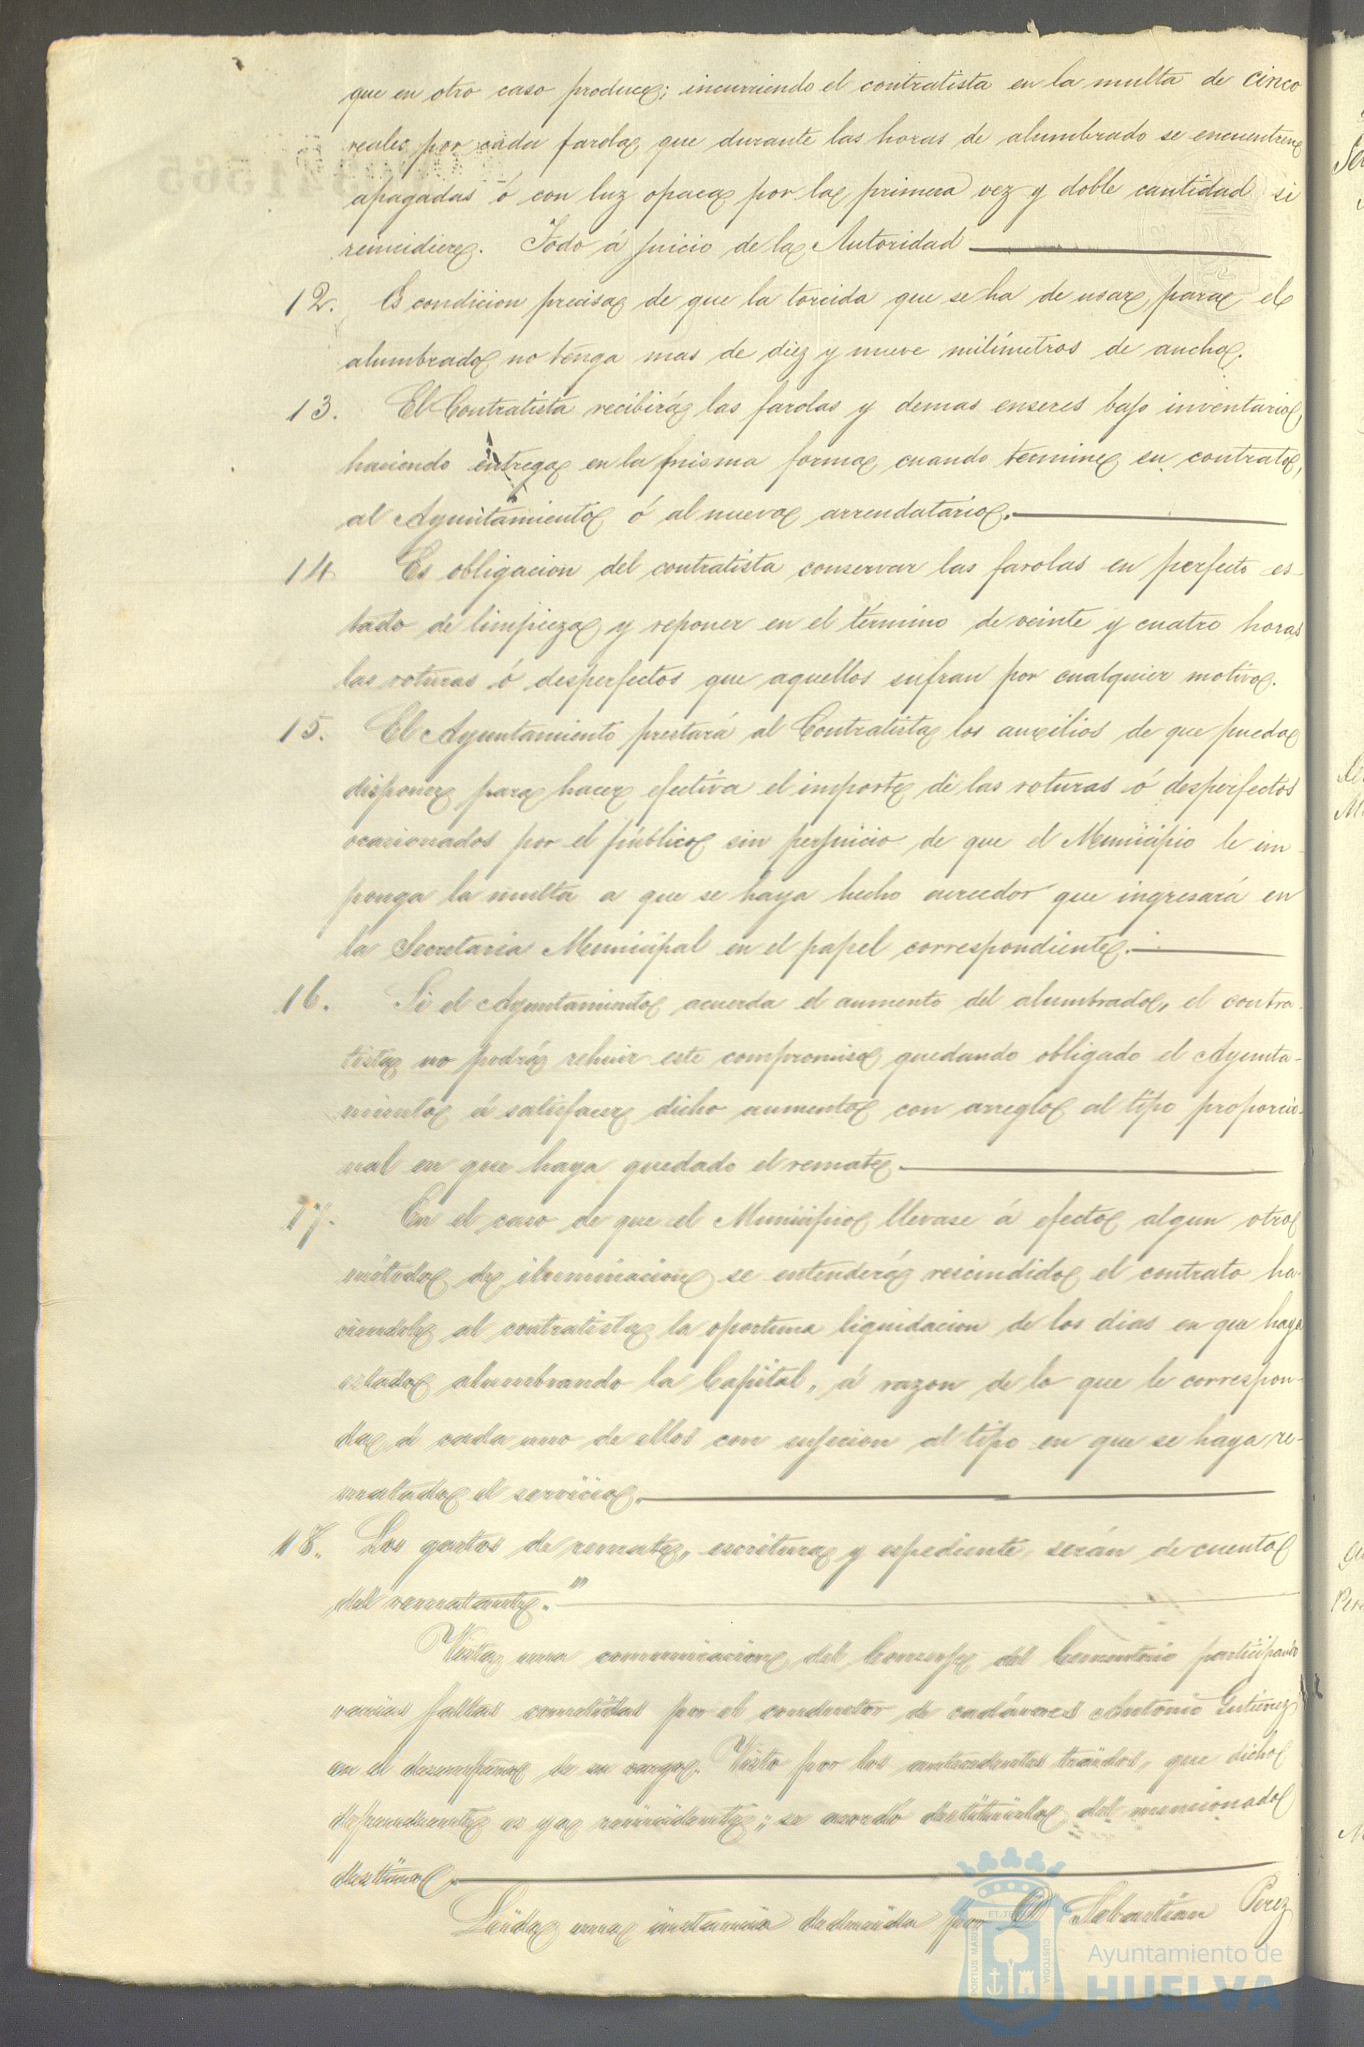 que en otro caso produce; incurriendo el contratista en la multa de cinco
reales por cada farola que durante las horas de alumbrado se encuentren
apagadas ó con luz opaca por la primera vez y doble cantidad si
reincidiere. Todo á juicio de la Autoridad
12. Es condicion precisa de que la torcida que se ha de usar, para el
alumbrado no tenga mas de diez y nueve milímetros de ancho.
13. El Contratista recibirá las farolas y demas enseres bajo inventario,
haciendo entrega en la misma forma cuando termine su contrato,
al Ayuntamiento ó al nuevo arrendatario.
14 Es obligacion del contratista conservar las farolas en perfecto es-
tado de limpieza y reponer en el término de veinte y cuatro horas
las roturas ó desperfectos que aquellos sufran por cualquier motivo.
15. El Ayuntamiento prestará al Contratista los auxilios de que pueda
disponer para hacer efectiva el importe de las roturas ó desperfectos
ocasionados por el público sin perjuicio de que el Municipio le im-
ponga la multa a que se haya hecho acreedor que ingresará en
la Secretaria Municipal en el papel correspondiente.
16. Si el Ayuntamiento acuerda el aumento del alumbrado, el contra-
tista no podrá rehuir este compromiso quedando obligado el Ayunta-
miento á satisfacer dicho aumento con arreglo al tipo proporcio-
nal en que haya quedado el remate.
17. En el caso de que el Municipio llevase á efecto algun otro
método de iluminacion se entenderá rescindido el contrato ha-
ciendole al contratista la oportuna liquidacion de los dias en que haya
estado alumbrando la Capital, á razon de lo que le correspon-
da á cada uno de ellos con sujecion al tipo en que se haya re-
matado el servicio.
18. Los gastos de remate, escritura y espediente, serán de cuenta
del rematante."
Vista una comunicacion del Conserje del Cementerio participando
varias faltas cometidas por el conductor de cadáveres Antonio Gutierrez
en el desempeño de su cargo. Visto por los antecedentes traidos, que dicho
dependiente es ya reincidente; se acordó destituirlo del mencionado
destino.
Leida una instancia deducida por D Sebastián Perez
Ayuntamiento de
HUELVA
PORTUS MARIS
ET TERRE
CUSTODIA